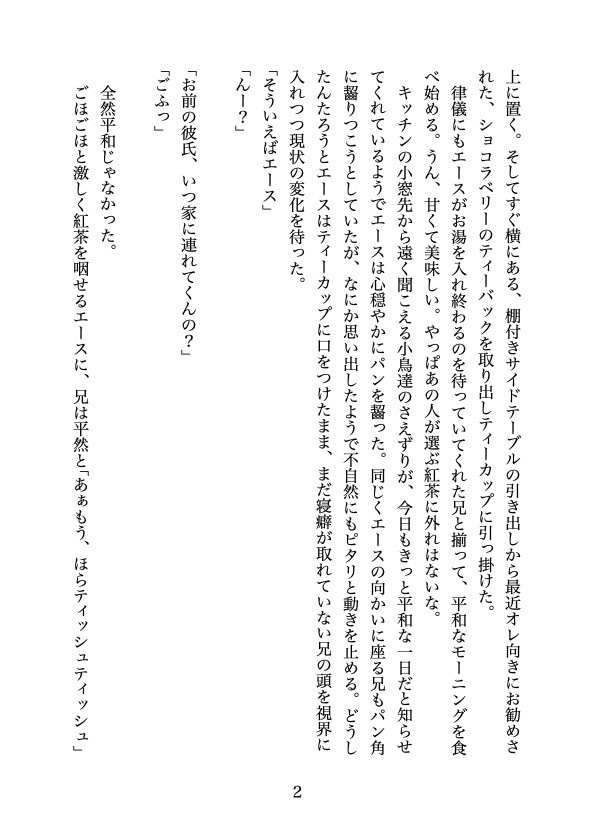 上に置く。そしてすぐ横にある、棚付きサイドテーブルの引き出しから最近オレ向きにお勧めさ
れた、ショコラベリーのティーバックを取り出しティーカップに引っ掛けた。
律儀にもエースがお湯を入れ終わるのを待っていてくれた兄と揃って、平和なモーニングを食
べ始める。うん、甘くて美味しい。やっぱあの人が選ぶ紅茶に外れはないな。
キッチンの小窓先から遠く聞こえる小鳥達のさえずりが、今日もきっと平和な一日だと知らせ
てくれているようでエースは心穏やかにパンを齧った。同じくエースの向かいに座る兄もパン角
に齧りつこうとしていたが、なにか思い出したようで不自然にもピタリと動きを止める。どうし
たんたろうとエースはティーカップに口をつけたまま、まだ寝癖が取れていない兄の頭を視界に
入れつつ現状の変化を待った。
「そういえばエース」
「んー？」
「お前の彼氏、いつ家に連れてくんの？」
「ごふっ」
全然平和じゃなかった。
ごほごほと激しく紅茶を咽せるエースに、兄は平然と「あぁもう、ほらティッシュティッシュ」
2